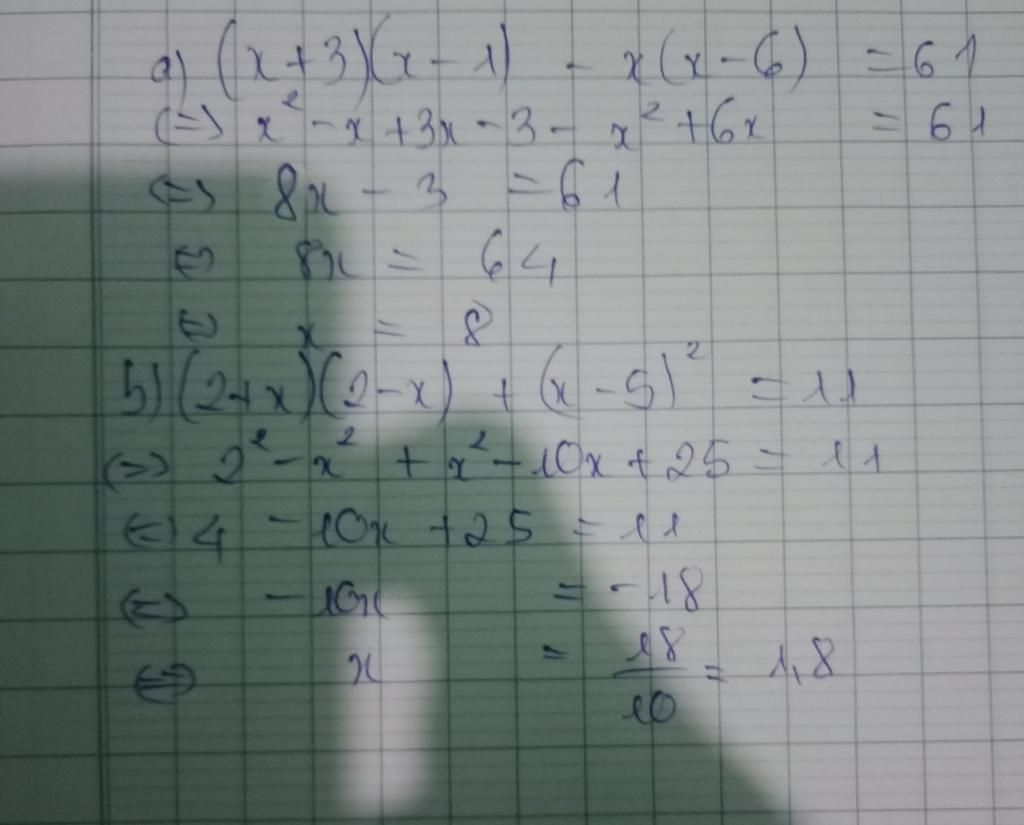 a) (x+3)(x-1) - x(x-6) = 61
(=) x² - x + 3x - 3 - x² + 6x = 61
(=) 8x - 3 = 61
⇔ 8x = 64
⇔ x = 8
b) (2+x)(2-x) + (x-5)² = 11
(=) 2² - x² + x² - 10x + 25 = 11
(=) 4 - 10x + 25 = 11
(=) -10x = -18
⇔ x = 18/10 = 1,8